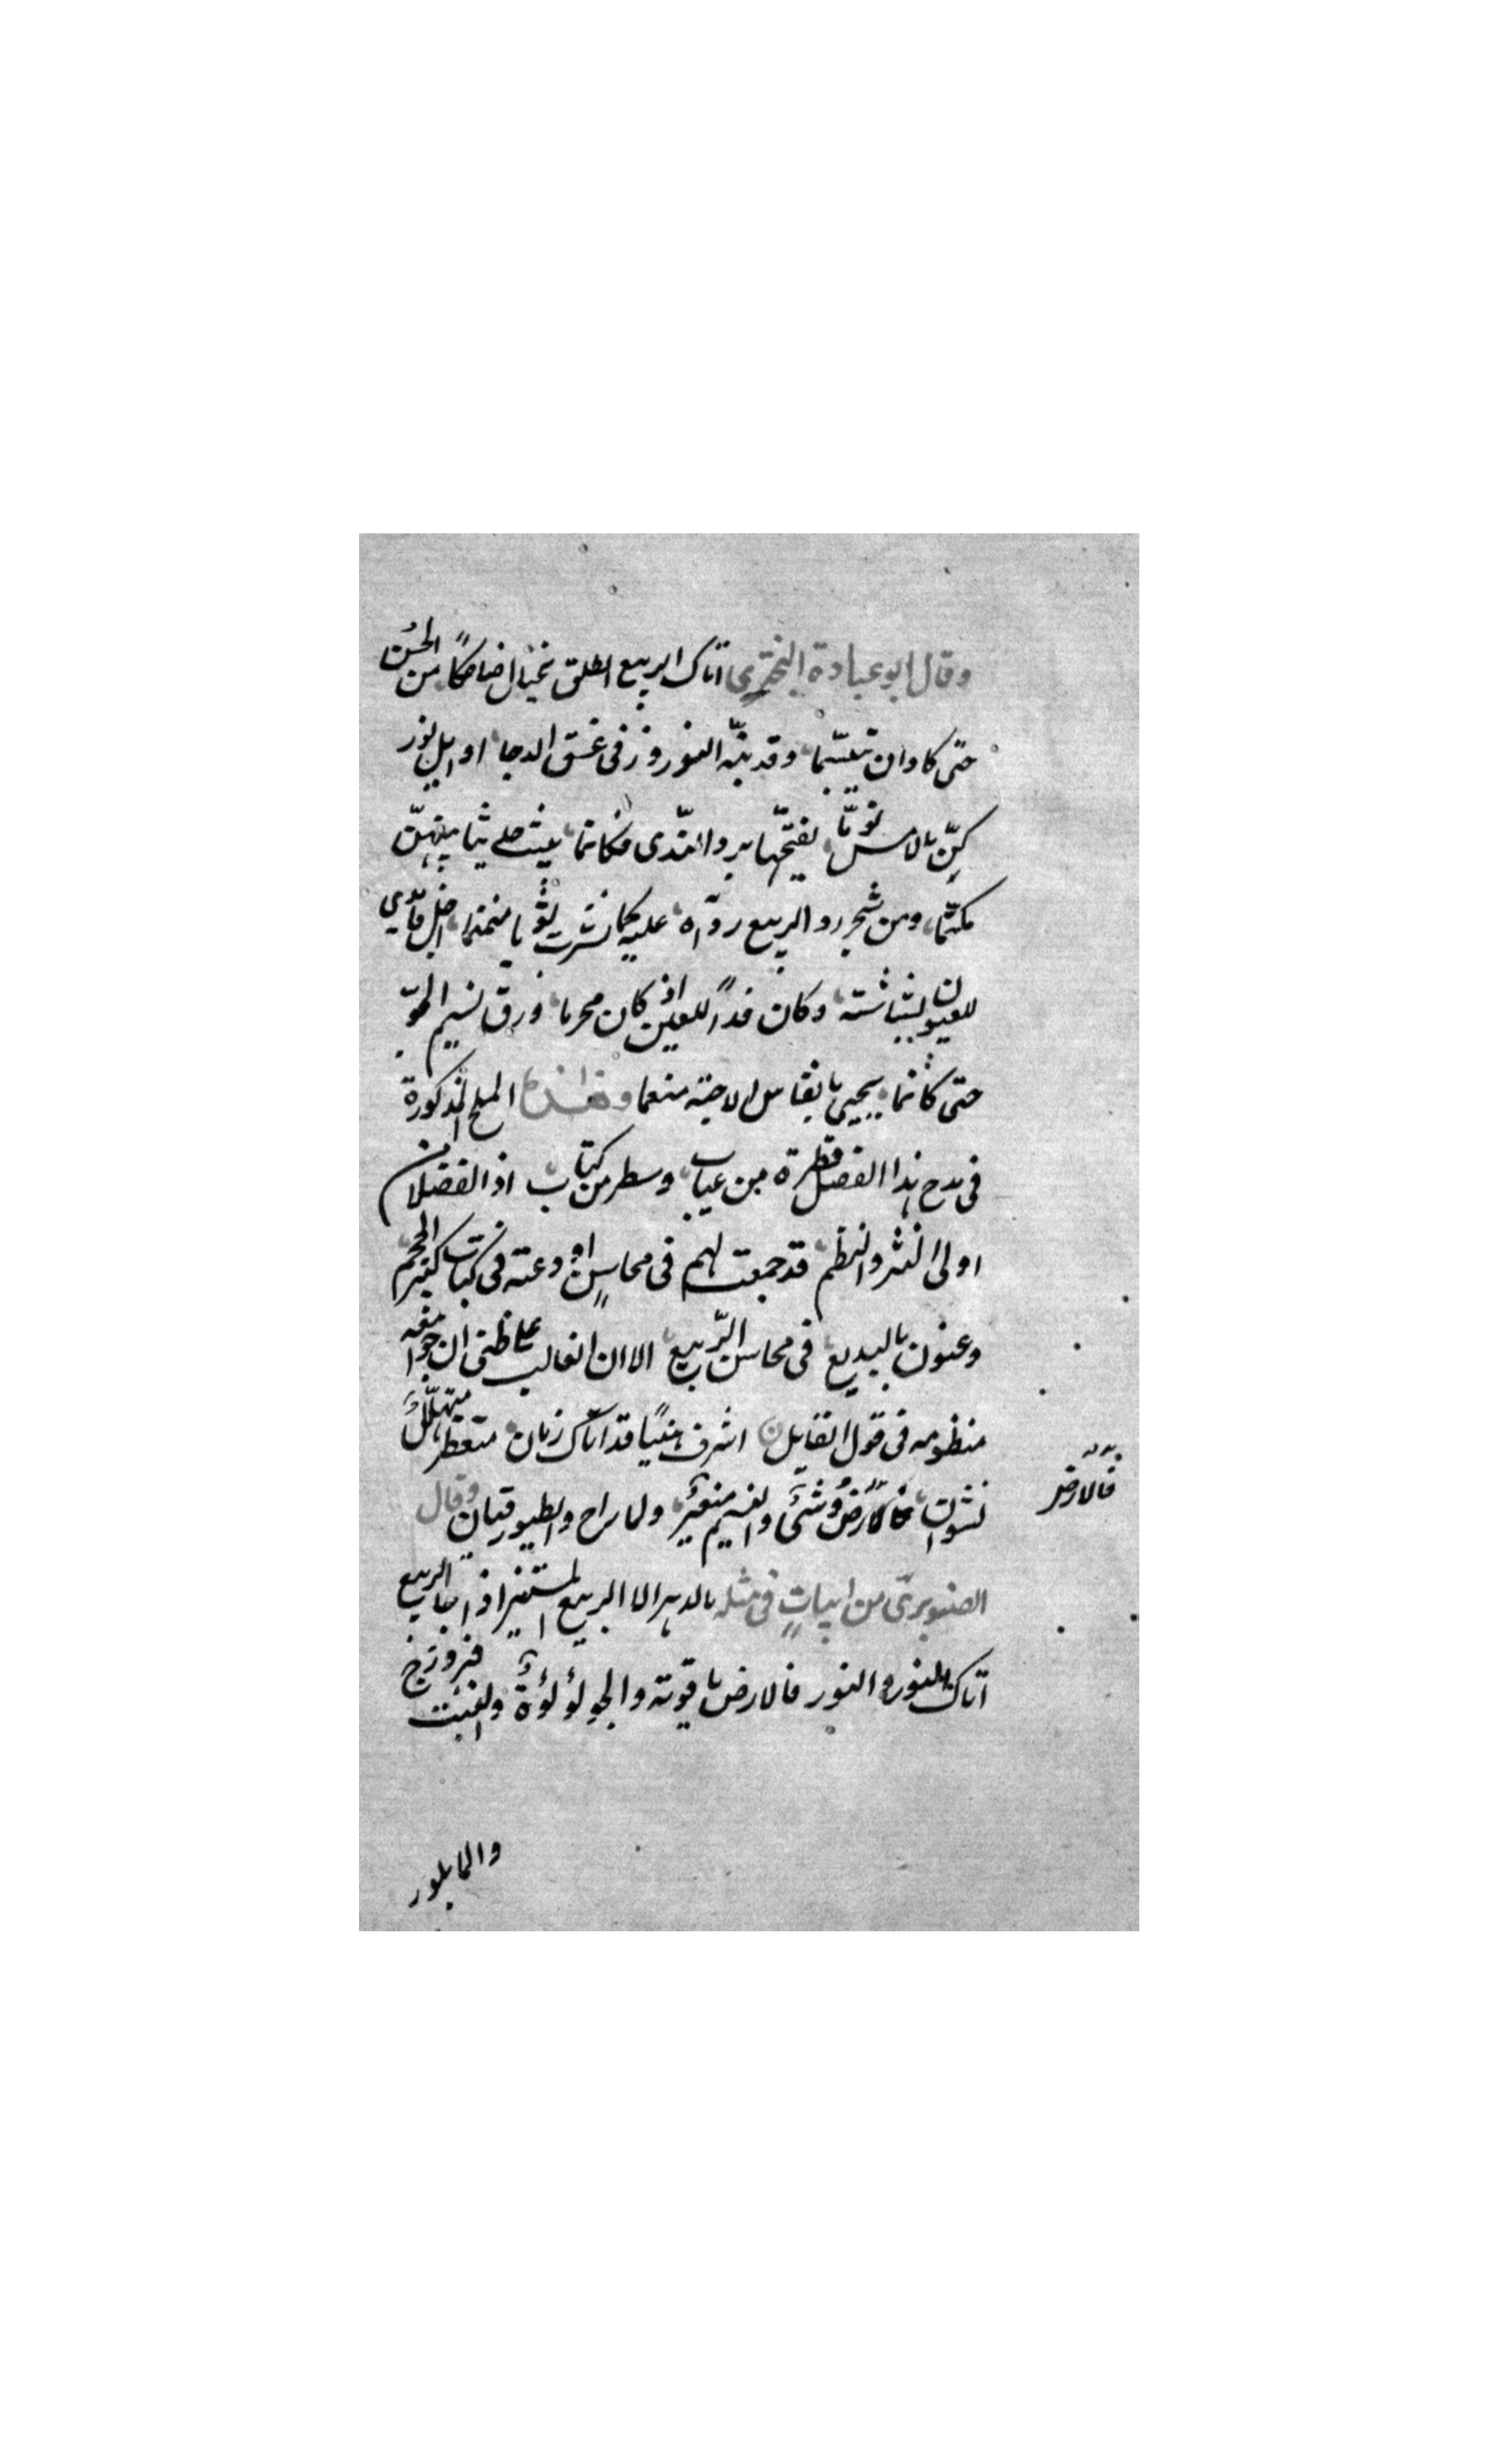 وقال ابو عبادة البختري اتاك الربيع الطلق يختال ضاحكاً من الحُسن
حتى كاد ان تبسّما وقد نبّه النوروز في غسق الدجا اوايل نور
كنّ بالامس نوّما يفتّحها برد الندى فكانما يبث حديثا بينهنّ
مكتّما ومن شجر رد الربيع رداه عليه كما نشرت ثوبا منمنما احل فابدي
للعيون بشاشته وكان قذاً للعين اذ كان محرما ورق نسيم الجوّ
حتى كانما يجيى بانفاس الاحبّه منعما وهذه الملح المذكورة
في مدح هذا الفصل قطرة من عباب وسطر من كتاب اذ الفضلا من
اولى النثر والنظم قد جمعت لهم في محاسنٍ اودعته في كتاب كبير الحجم
وعنون بالبديع في محاسن الرّبيع الا ان الغالب على ظني ان جوامعه
منظومه في قول القايل اشرف هنيًا قد اتاك زمان متعطر متهلّلٌ
نشوان فالارض وشىٌ والنسيم معنبرٌ والما راح والطيور قيان وقال
الصنوبرىّ من ابياتٍ في مثله ما الدهر الا الربيع المستنير اذا جا الربيع
اتاك النور والنور فالارض ياقوته والجو لؤلؤةٌ والنبت فيروزج
فالارض
والما بلور